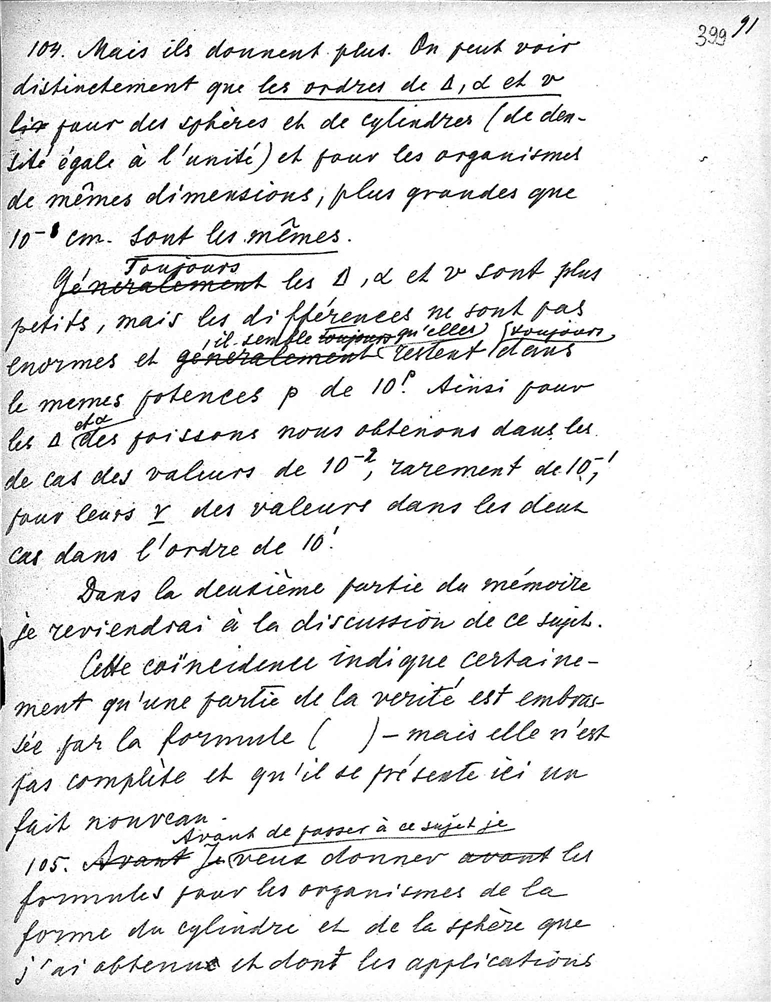 399 91
104. Mais ils donnent plus. On peut voir
distinctement que les ordres de Δ, α et v
pour des sphères et de cylindres (de den-
sité égale à l'unité) et pour les organismes
de mêmes dimensions, plus grandes que
cm. sont les mêmes.
Toujours
Généralement les Δ, α et v sont plus
petits, mais les différences ne sont pas
il semble toujours qu'elles toujours
enormes et généralement restent dans
le memes potences p de 10ᵖ. Ainsi pour
et α
les Δ des poissons nous obtenons dans les
de cas des valeurs de 10⁻², rarement de 10⁻¹,
pour leurs v des valeurs dans les deux
cas dans l'ordre de 10¹.
Dans la deuxième partie du mémoire
je reviendrai à la discussion de ce sujet.
Cette coïncidence indique certaine-
ment qu'une partie de la verité est embras-
sée par la formule ( ) – mais elle n'est
pas complète et qu'il se présente ici un
fait nouveau.
Avant de passer à ce sujet je
105. Avant Je veux donner avant les
formules pour les organismes de la
forme du cylindre et de la sphère que
j'ai obtenue et dont les applications